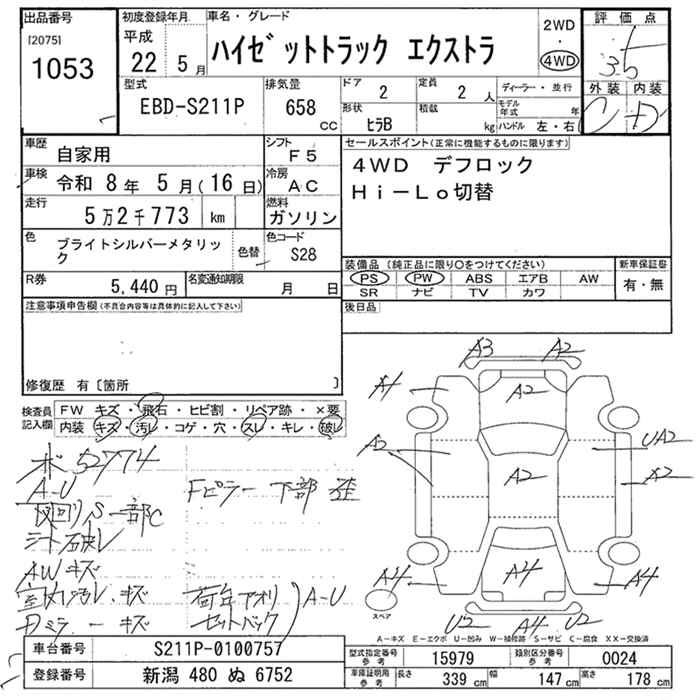 出品番号 初度登録年月 車名・グレード 2WD 4WD 評価点
[2075] 1053 平成 22年 5月 ハイゼットトラック エクストラ 3.5
型式 EBD-S211P 排気量 658 CC ドア 2 定員 2 人 ディーラー・並行 外装 内装
形状 ヒラB 積載 kg モデル年式 年 ハンドル 左・右 C D
車歴 自家用 シフト F5 セールスポイント(正常に機能するものに限ります)
車検 令和 8年 5月(16日) 冷房 AC 4WD デフロック
走行 5万2千773 km 燃料 ガソリン Hi-Lo切替
色 ブライトシルバーメタリック 色替 色コード S28
装備品(純正品に限り○をつけてください) 新車保証書
R券 5,440円 名変通知期限 月 日 PS PW ABS エアB AW 有・無
SR ナビ TV カワ
注意事項申告欄(不具合内容等は具体的に記入して下さい) 後日品
修復歴 有〔箇所 〕
検査員記入欄 FW キズ・飛石・ヒビ割・リペア跡・×要
内装 キズ・汚レ・コゲ・穴・スレ・キレ・破レ
ボ 52774
A-U Fピラー下部 歪
下回りS 一部C
シート破レ
AWキズ
室内汚レ・キズ 荷台アオリ
Dミラーキズ セットバック A-U
A3 A2
A1 A2
A2 UA2
A2 A2
A4 A4 A4
U2 A4 U2
スペア
A-キズ E-エクボ U-凹み W-補修跡 S-サビ C-腐食 XX-交換済
車台番号 S211P-0100757 型式指定番号 参考 15979 類別区分番号 参考 0024
登録番号 新潟 480 ぬ 6752 車庫証明用 参考 長さ 339 cm 幅 147 cm 高さ 178 cm